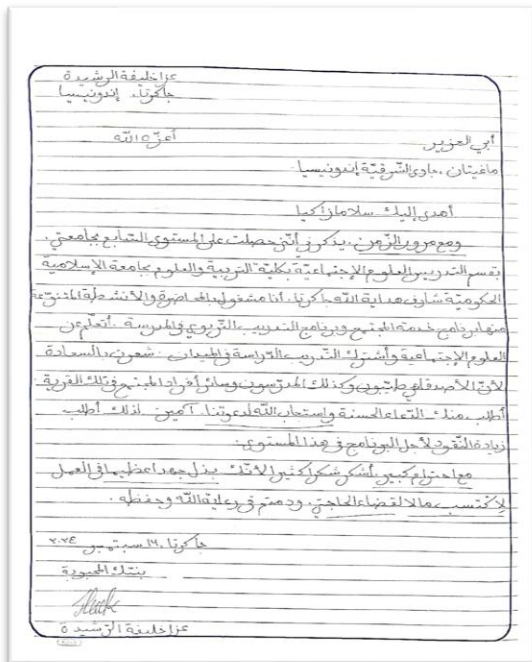 عزا خليفة الرشيدة
جاكرتا، إندونيسيا
أبي العزيز أعزه الله
ماغيتان، جاوى الشرقية إندونيسيا
أهدي إليك سلاما زاكيا
ومع مرور الزمن، يذكرني أنني حصلت على المستوى السابع بجامعتي،
بقسم التدريس العلوم الإجتماعية بكلية التربية والعلوم بجامعة الإسلامية
الحكومية شريف هداية الله جاكرتا. أنا مشغول بالمحاضرة والأنشطة المتنوعة
منها برنامج خدمة المجتمع وبرنامج التدريب التربوي في المدرسة. أتعلم عن
العلوم الإجتماعية وأشترك التدريب الدراسة في الميدان. شعرت بالسعادة
لأن الأصدقاء طيبون وكذلك المدرسون وسائر أفراد المجتمع في تلك القرية.
أطلب منك الدعاء الحسنة واستجاب الله لدعوتنا. آمين. لذلك أطلب
زيادة النقود لأجل البرنامج في هذا المستوى.
مع احترام كبير، أشكر شكرا كثيرا لأنك بذل جهدا عظيما في العمل
لإكتسب مالا لقضاء الحاجتي، ودمتم في رعاية الله وحفظه.
جاكرتا، ١٦ سبتمبر ٢٠٢٤
بنتك المحبوبة
عزا خليفة الرشيدة